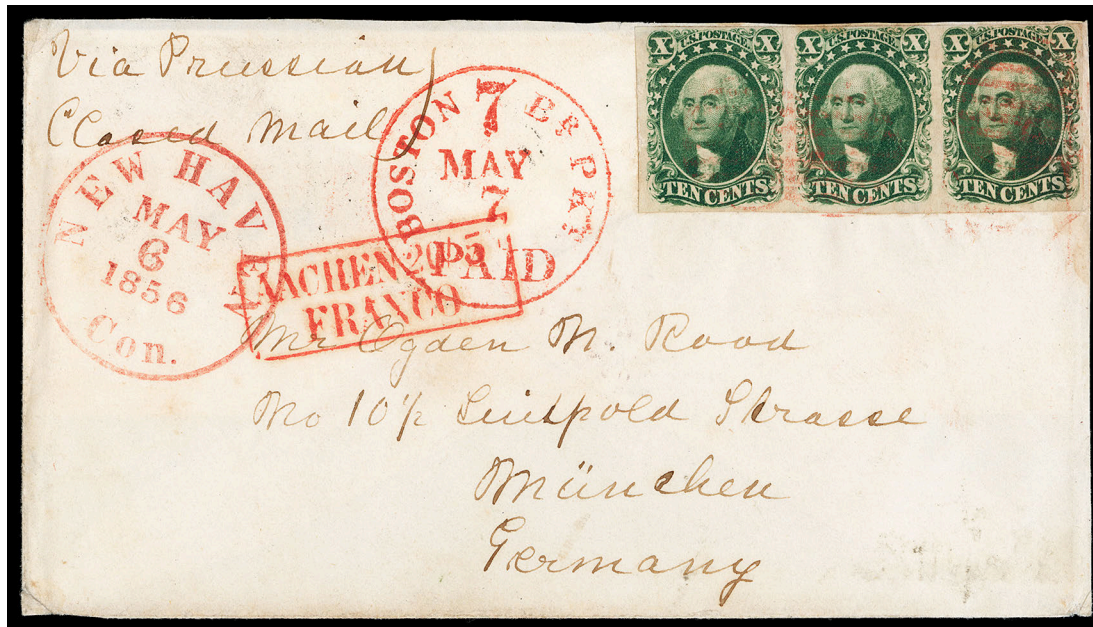 Via Prussian
Closed Mail
NEW HAVEN
MAY
6
1856
Con.
BOSTON BR. PKT
7
MAY
7
PAID
AACHEN 20 5
FRANCO
X U.S. POSTAGE X
TEN CENTS
X U.S. POSTAGE X
TEN CENTS
X U.S. POSTAGE X
TEN CENTS
Mr Ogden N. Rood
No 10½ Luitpold Strasse
München
Germany